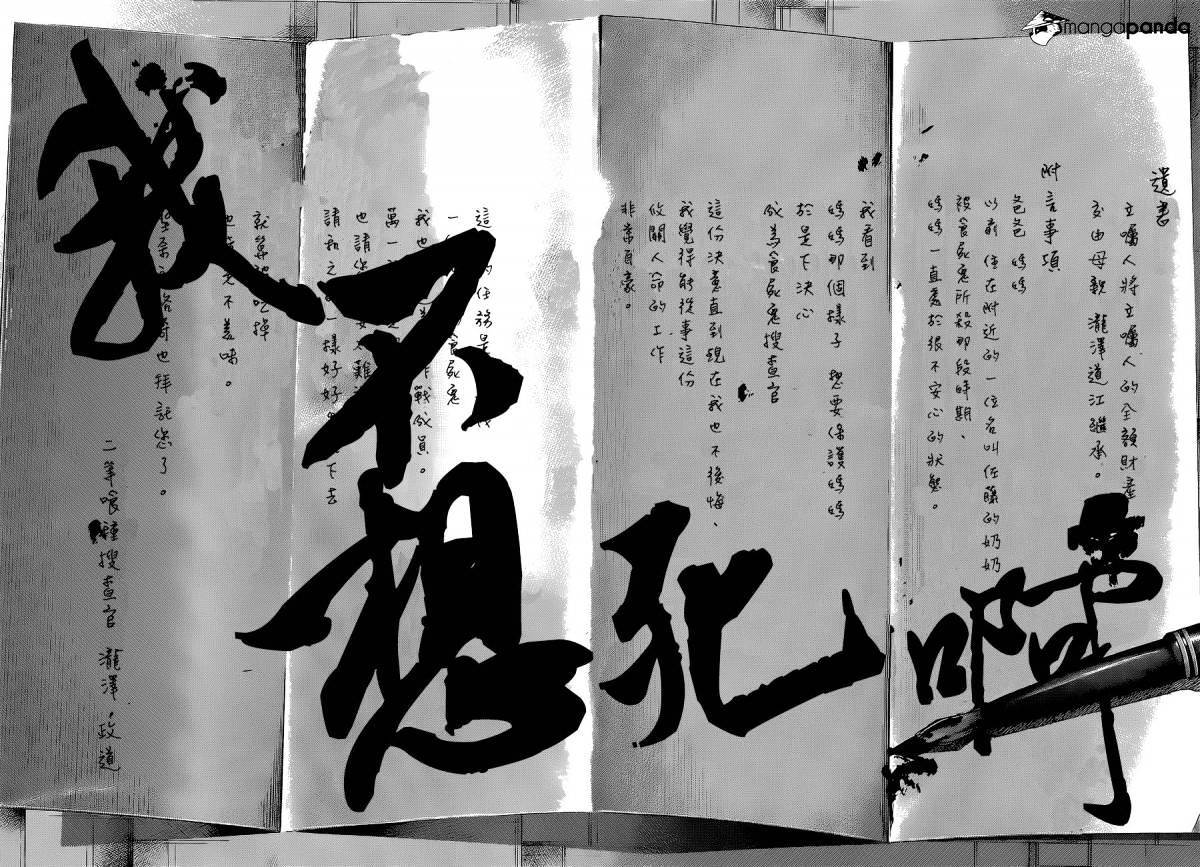 mangapanda
遺書
立囑人將立囑人的全額財產
交由母親 瀧澤道江繼承。
附言事項
爸爸 媽媽
以前住在附近的一位名叫佐藤的奶奶
被食屍鬼所殺那段時期、
媽媽一直處於很不安心的狀態。
我看到
媽媽那個樣子 想要保護媽媽
於是下決心
成為食屍鬼搜查官
這份決意直到現在我也不後悔、
我覺得能從事這份
攸關人命的工作
非常自豪。
這 的任務是
一 食屍鬼
我也 作戰成員。
萬一
也請您 難
請和之 一樣好好 下去
就算被吃掉
也 不美味。
也拜託您了。
二等喰種搜查官 瀧澤 政道
我不想死啊